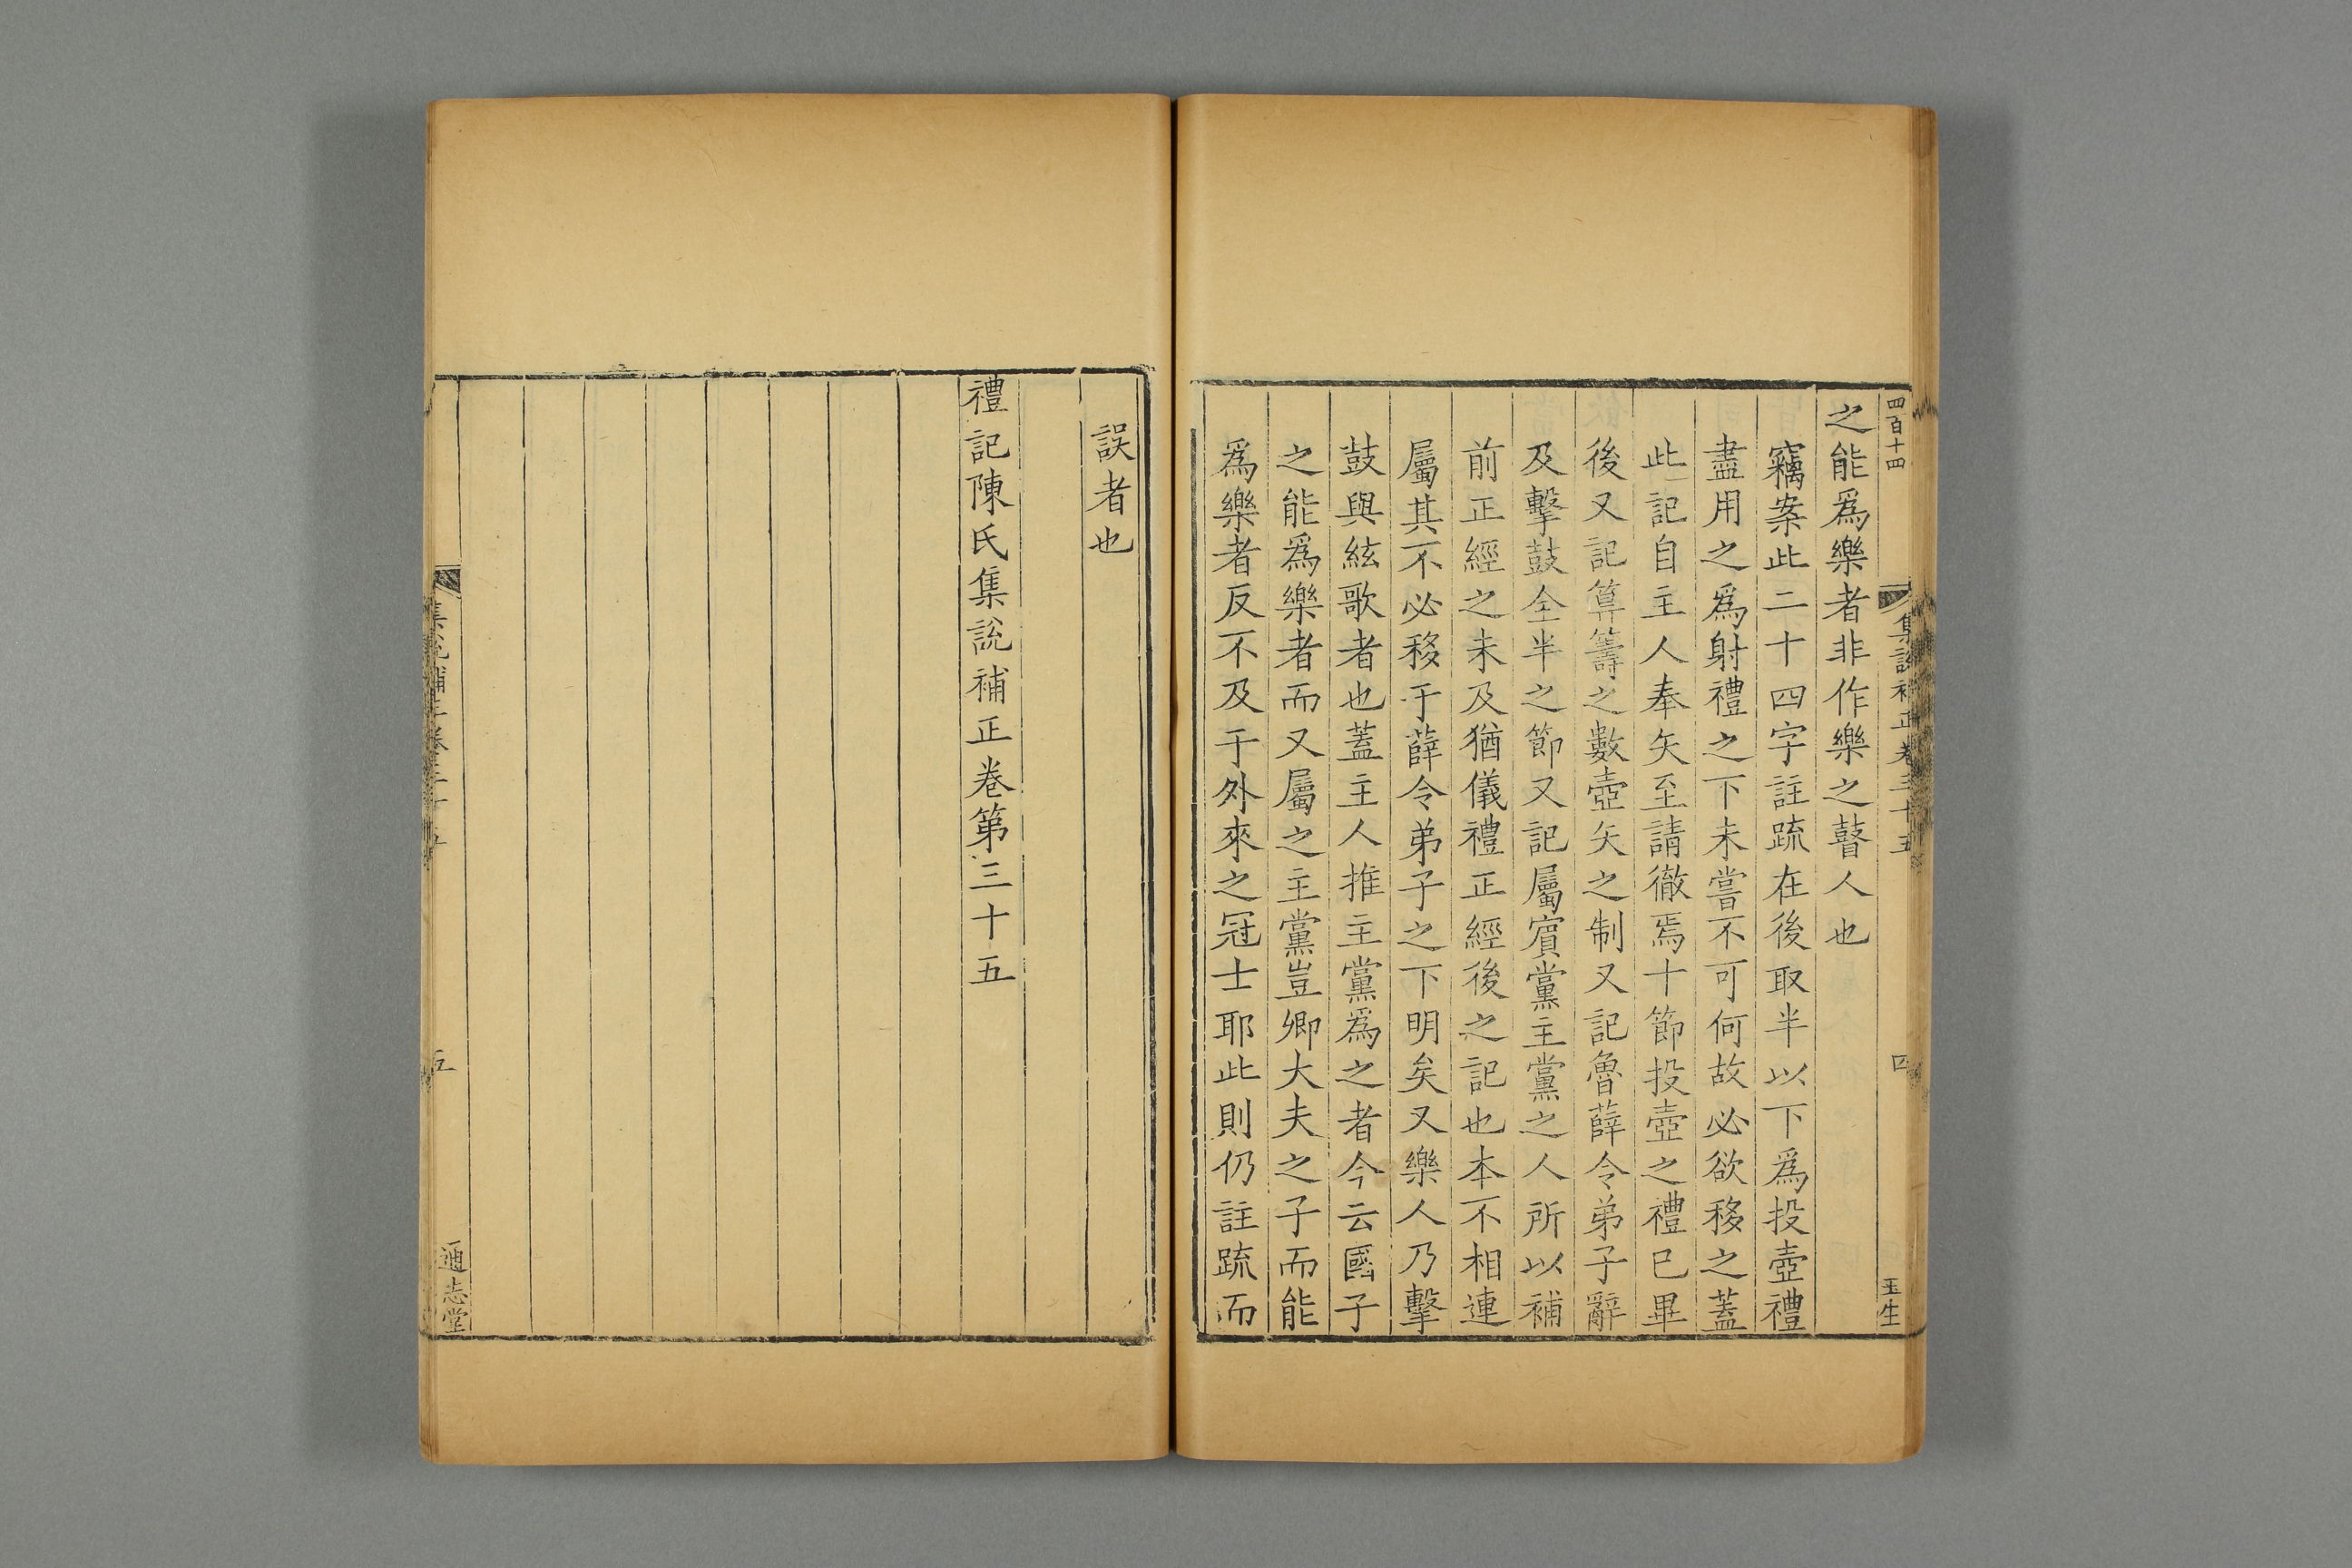 四百十四
集說補正卷三十五
四
玉生
之能爲樂者非作樂之瞽人也
竊案此二十四字註疏在後取半以下爲投壺禮
盡用之爲射禮之下未嘗不可何故必欲移之蓋
此記自主人奉矢至請徹焉十節投壺之禮已畢
後又記算籌之數壺矢之制又記魯薛令弟子辭
及擊鼓全半之節又記屬賓黨主黨之人所以補
前正經之未及猶儀禮正經後之記也本不相連
屬其不必移于薛令弟子之下明矣又樂人乃擊
鼓與絃歌者也蓋主人推主黨爲之者今云國子
之能爲樂者而又屬之主黨豈卿大夫之子而能
爲樂者反不及于外來之冠士耶此則仍註疏而
誤者也
禮記陳氏集說補正卷第三十五
集說補正卷三十五
五
通志堂